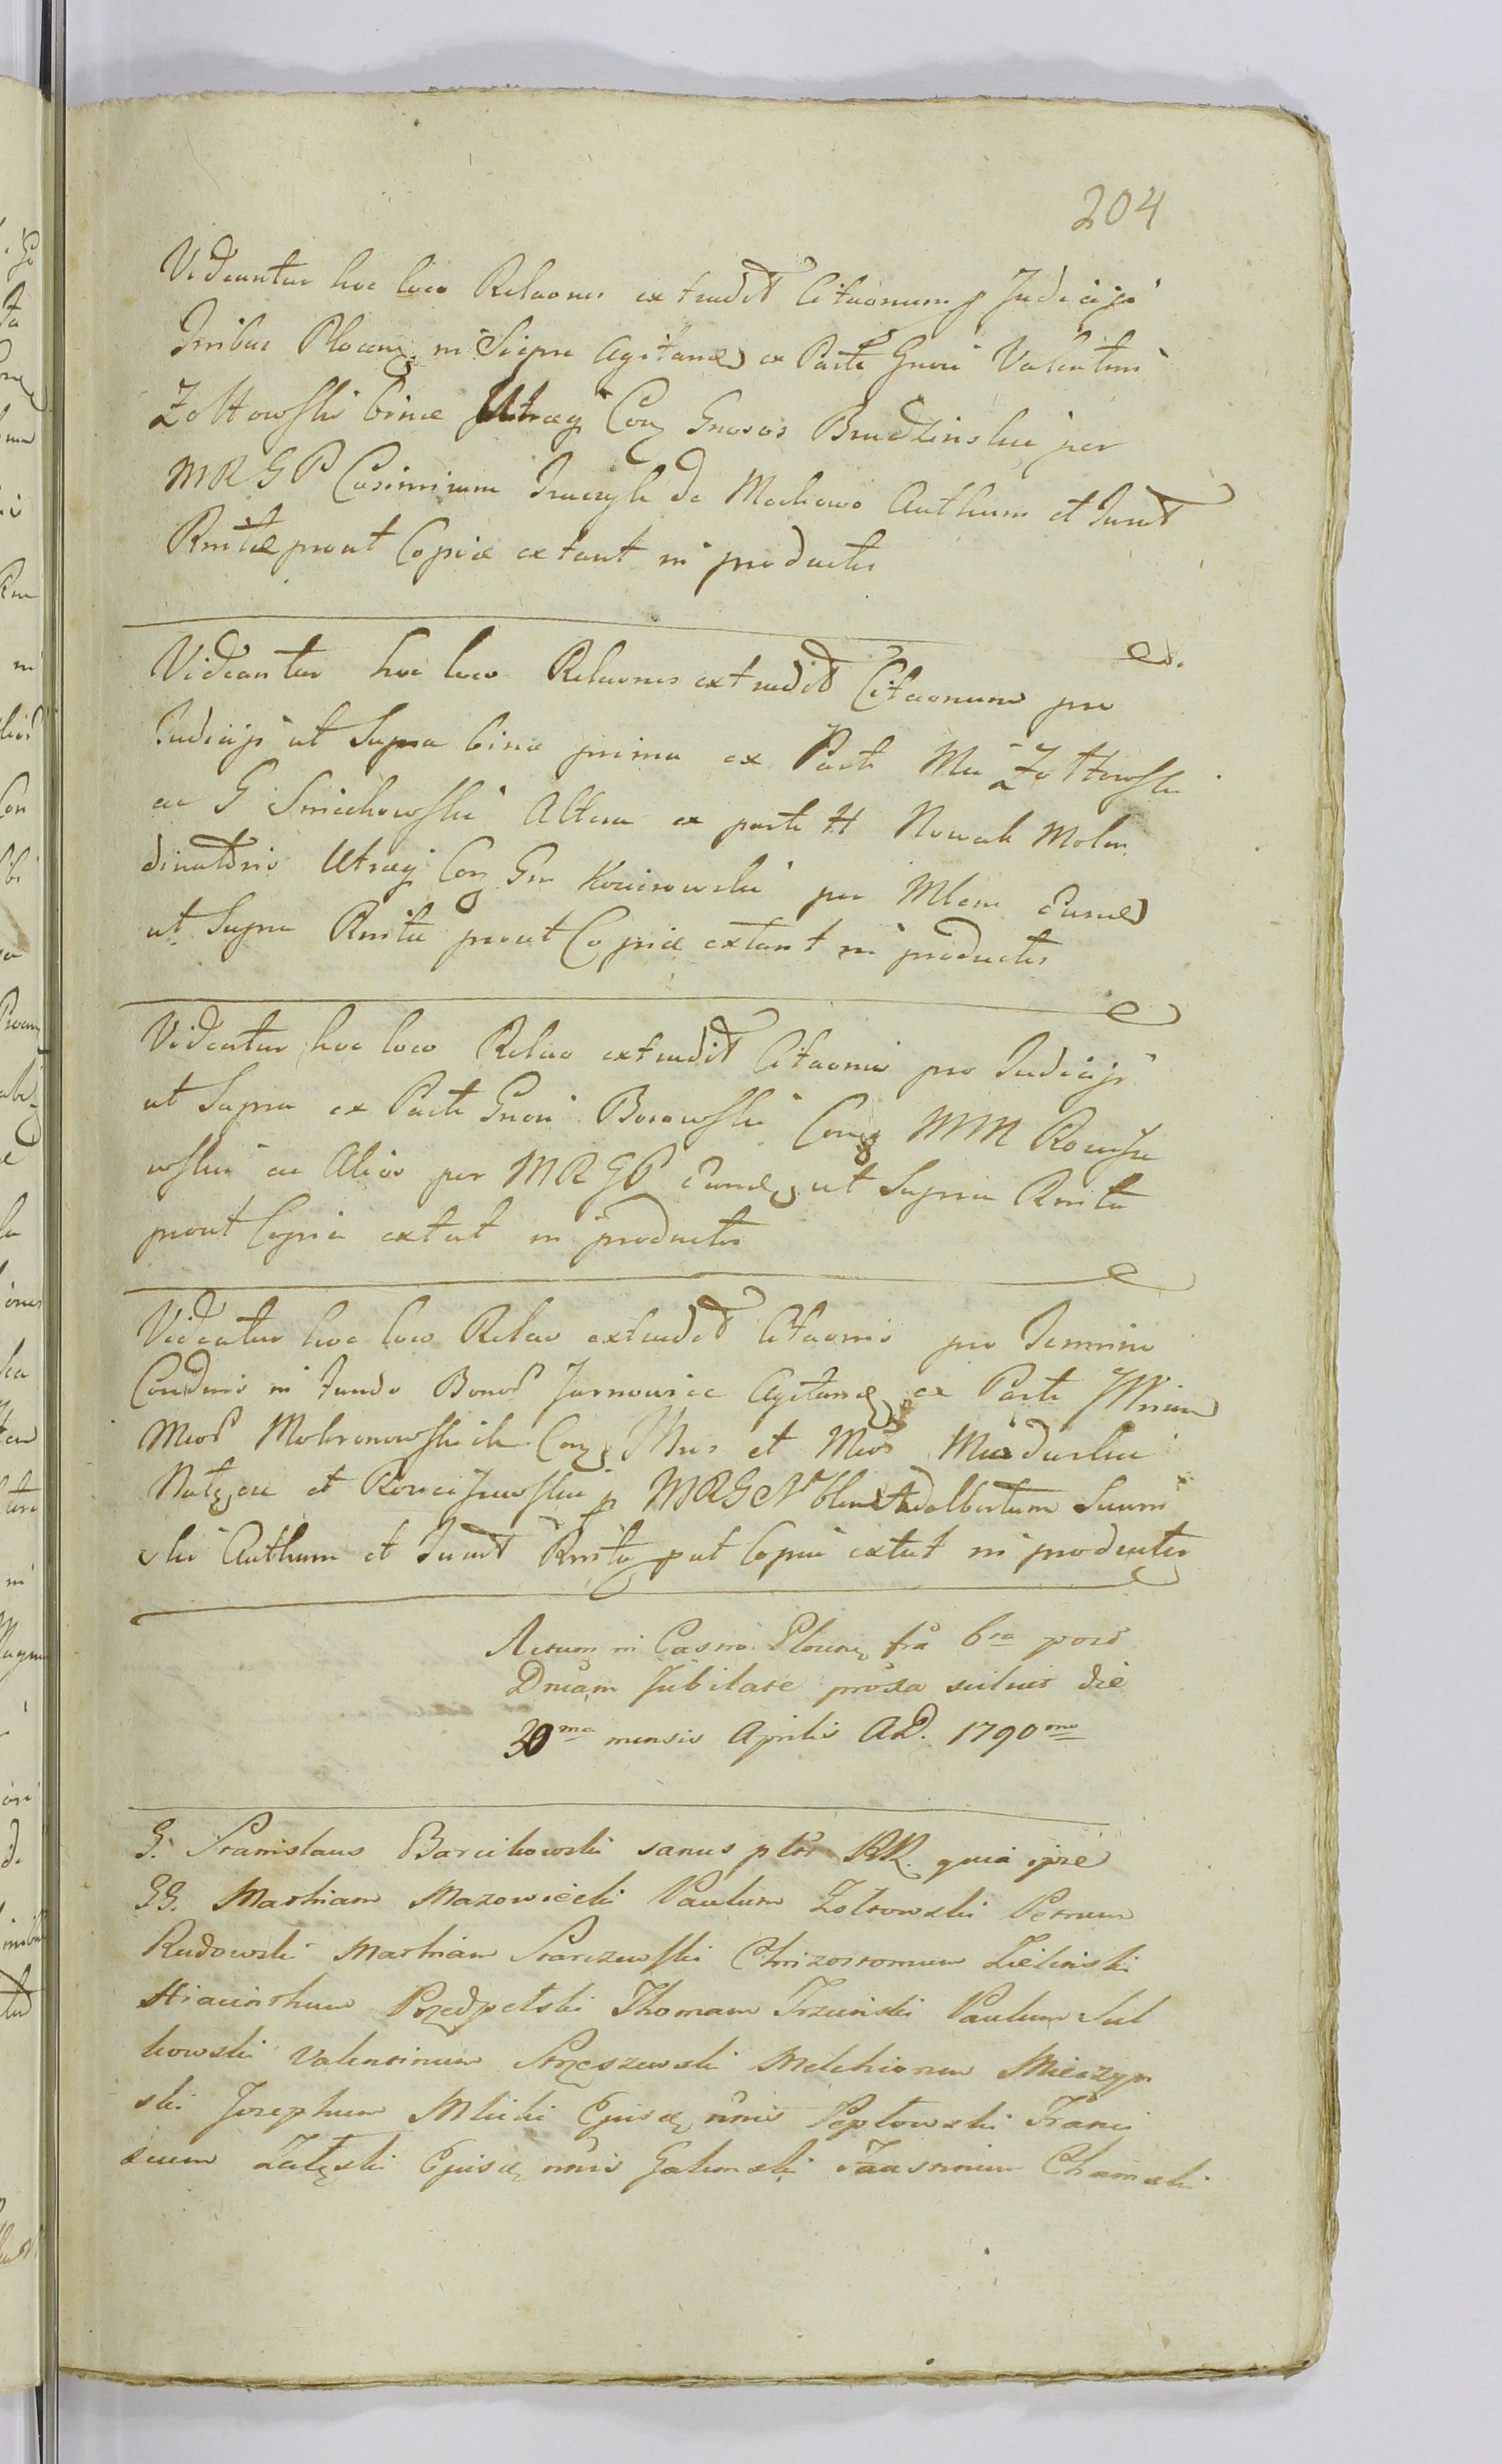 204
Videantur hoc loco Relaones extradit Citaonum p Judicijs
Tribus Plocen in Siepre Agitand ex Parte Gnosi Valentini
Zołtowski binæ Utraq Con Gnosos Brudzinskie per
MRGP Casimirum de Mochowo Authum et Jurat
Rnitæ prout Copiæ extant in productis
Videantur hoc loco Relaones extradit Citaonum pro
Judicijs ut Supra binæ prima ex Parte Mci Zołtowski
ac G Smiechowski Altera ex parte H Nowak Molen
dinatoris Utraq Con Gn per Mlem Eund
ut Supra Rnitæ prout Copiæ extant in productis
Videatur hoc loco Relao extradit Citaonis pro Judicijs
ut Supra ex Parte Gnosi Borowski Con MM
wskie ac Alios per MRGP Eund ut Supra Rnita
prout Copia extat in productis
Videatur hoc loco Relao extradit Citaonis pro Termino
Condnis in fundo Bonor Jarnowiec Agitand ex Parte
Mcor Mokronowskich Con et Mcos
et p MRG Adalbertum
ski Authum et Jurat Rnita put Copia extat in productis
Actum in Castro Plocen fra 6ta post
Dnicam Jubilate proxa scilicet die
30ma mensis Aprilis A.D. 1790mo
G. Stanislaus Barcikowski sanus RR. quia ipse
GG. Mathiam Mazowiecki Paulum Zołtowski Petrum
Rudowski Mathiam Starczewski Chrizostomum Zielinski
Hiacinthum Przedpełski Thomam Trzcinski Paulum Sul
kowski Valentinum Strzeszewski Melchiorem Mierzyn
ski Josephum Mlicki nnis Pepłowski Franci
scum Załęski nnis Galinski Faustinum Chamski